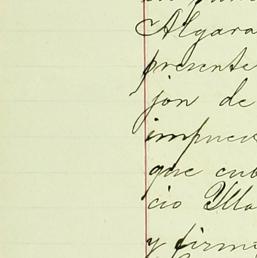 Algara
presente
jon de
impues
que cub
cio Illa
y firma